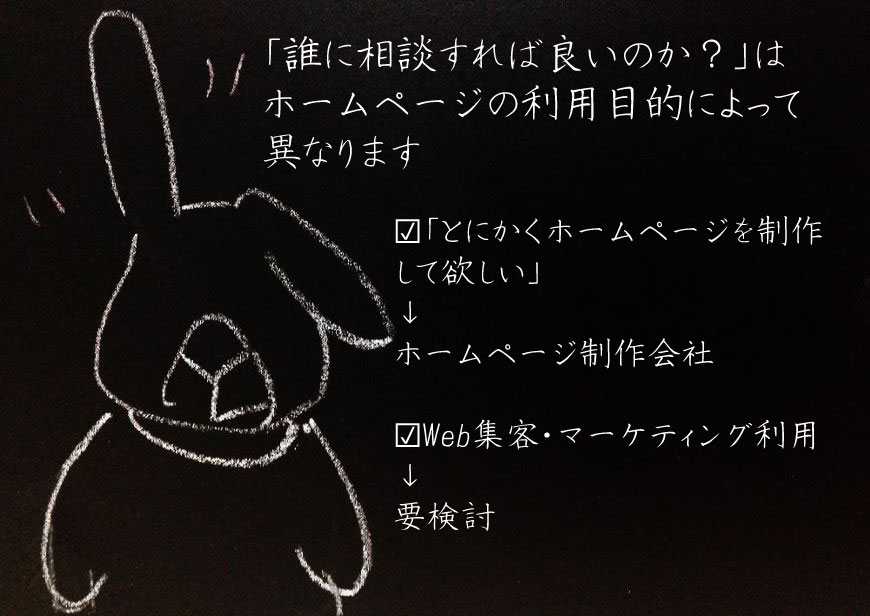 「誰に相談すれば良いのか？」は
ホームページの利用目的によって
異なります
☑「とにかくホームページを制作
して欲しい」
↓
ホームページ制作会社
☑Web集客・マーケティング利用
↓
要検討